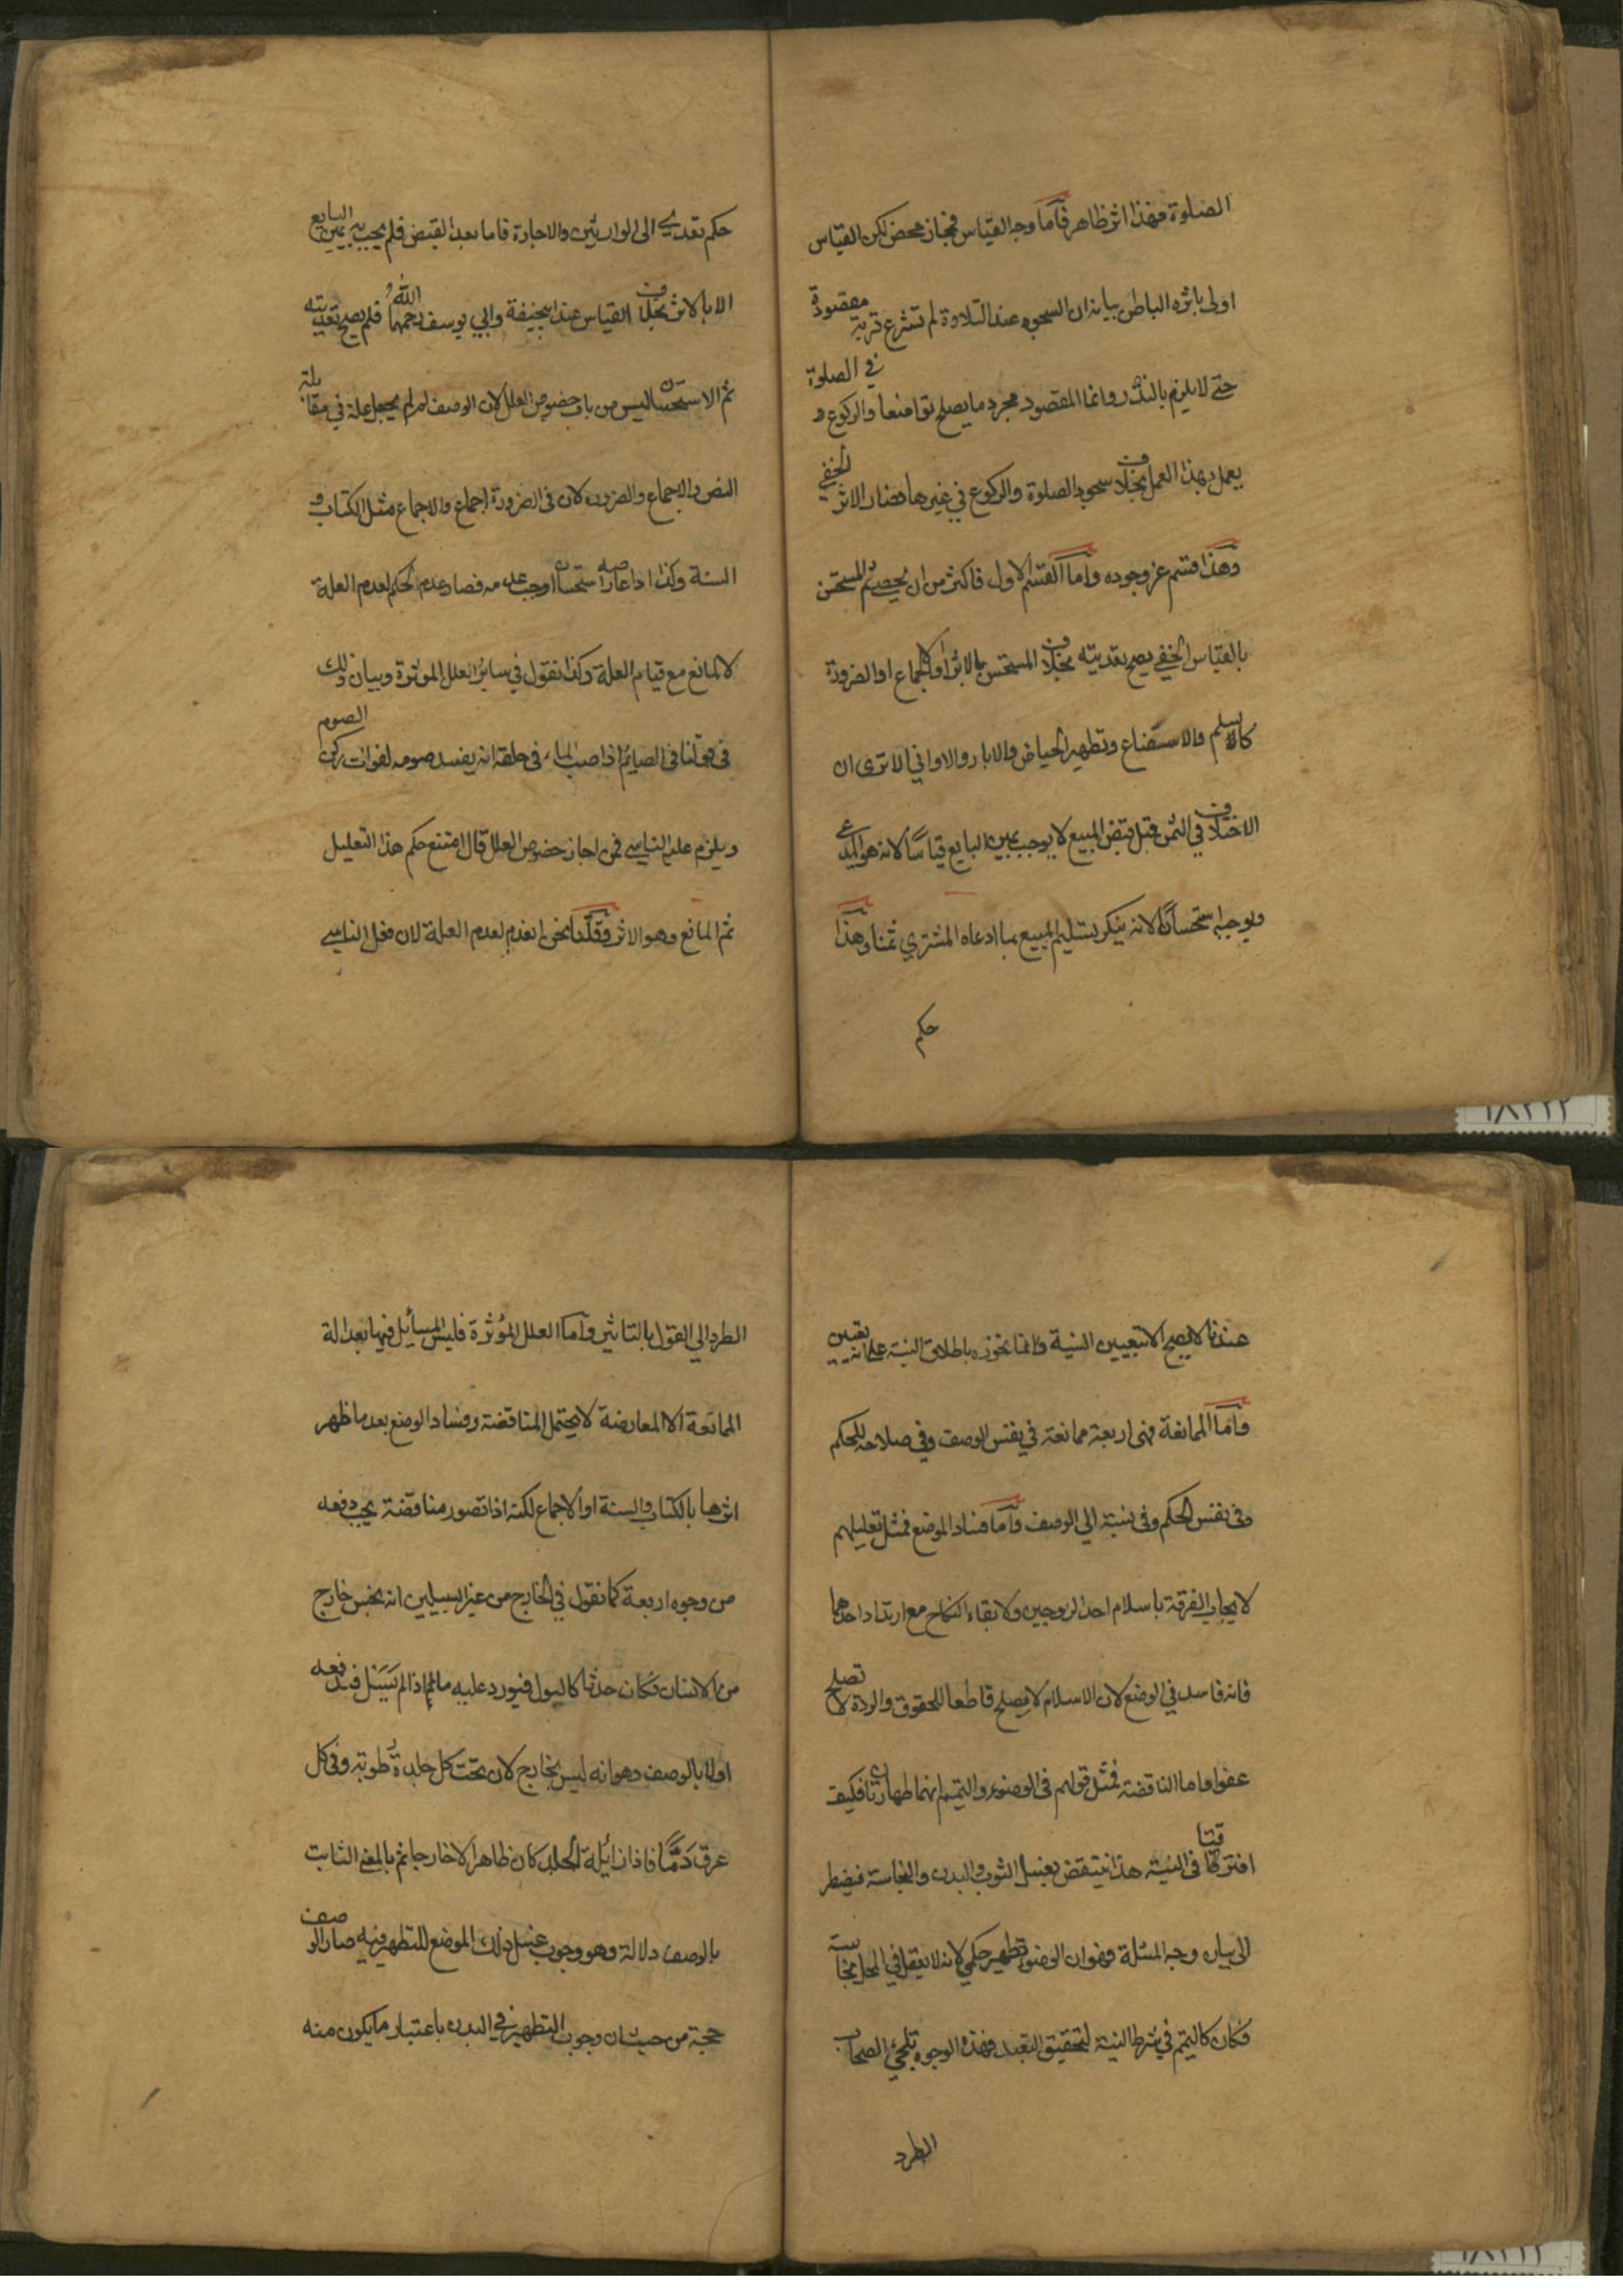 الصلوة فهذا اثر ظاهر فاما وجه القياس فمجاز محض لكن القياس
اولى باثره الباطن بيانه ان السجود عند التلاوة لم تشرع قربة مقصودة
حتى لا يلزم بالنذر وانما المقصود مجرد ما يصلح تواضعا والركوع في الصلوة
يعمل بهذا العمل بخلاف سجود الصلوة والركوع في غيرها فصار الاثر الخفي
وهذا قسم عز وجوده واما القسم الاول فاكثر من ان يحصى ثم المستحسن
بالقياس الخفي يصح تعديته بخلاف المستحسن بالاثر او الاجماع او الضرورة
كالسلم والاستصناع وتطهير الحياض والابار والاواني الا ترى ان
الاختلاف في الثمن قبل قبض المبيع لا يوجب يمين البايع قياسا لانه هو المدعي
ويوجبه استحسانا لانه ينكر تسليم المبيع بما ادعاه المشتري ثمنا وهذا
حكم
حكم تعدى الى الوارثين والاجارة فاما بعد القبض فلم يجب يمين البايع
الا بالاثر بخلاف القياس عند ابيحنيفة وابي يوسف رحمهما الله فلم يصح تعديته
ثم الاستحسان ليس من باب خصوص العلل لان الوصف لم يجعل علة في مقابلة
النص والاجماع والضرورة لان في الضرورة اجماع والاجماع مثل الكتاب و
السنة وكذا اذا عارضه استحسان اوجب عدمه فصار عدم الحكم لعدم العلة
لا لمانع مع قيام العلة وكذا نقول في سائر العلل المؤثرة وبيان ذلك
في قولنا في الصائم اذا صب الماء في حلقه انه يفسد صومه لفوات ركن الصوم
ويلزم عليه الناسي فمن اجاز خصوص العلل قال امتنع حكم هذا التعليل
ثم المانع وهو الاثر وقلنا نحن انعدم لعدم العلة لان فعل الناسي
عندنا لا يصح الا بتعيين النية وانما نجوزه باطلاق النية على انه تعيين
واما الممانعة فهى اربعة ممانعة في نفس الوصف وفي صلاحه للحكم
وفي نفس الحكم وفي نسبته الي الوصف واما فساد الوضع فمثل تعليلهم
لايجاب الفرقة باسلام احد الزوجين ولابقاء النكاح مع ارتداد احدهما
فانه فاسد في الوضع لان الاسلام لا يصلح قاطعا للحقوق والردة لا تصلح
عفوا واما المناقضة فمثل قولهم في الوضوء والتيمم انهما طهارتان فكيف
افترقتا في النية هذا ينتقض بغسل الثوب والبدن والنجاسة فيضطر
الى بيان وجه المسئلة وهو ان الوضوء تطهير حكمي لانه لا يعقل في المحل نجاسة
فكان كالتيمم في شرط النية لتحقيق التعبد فهذه الوجوه تلجئ اصحاب
الطرد
الطرد الي القول بالتاثير واما العلل المؤثرة فليس للسائل فيها بعد الة
الممانعة الا المعارضة لا يحتمل المناقضة وفساد الوضع بعد ما ظهر
اثرها بالكتاب والسنة او الاجماع لكنه اذا تصور مناقضة يجب دفعه
من وجوه اربعة كما نقول في الخارج من غير السبيلين انه نجس خارج
من الانسان فكان حدثا كالبول فيورد عليه ما اذا لم يسل فندفعه
اولا بالوصف وهو انه ليس بخارج لان تحت كل جلدة رطوبة وفي كل
عرق دما فاذا زايله الجلد كان ظاهرا لا خارجا ثم بالمعني الثابت
بالوصف دلالة وهو وجوب غسل ذلك الموضع للتطهير فيه صار الوصف
حجة من حيث ان وجوب التطهير في البدن باعتبار ما يكون منه